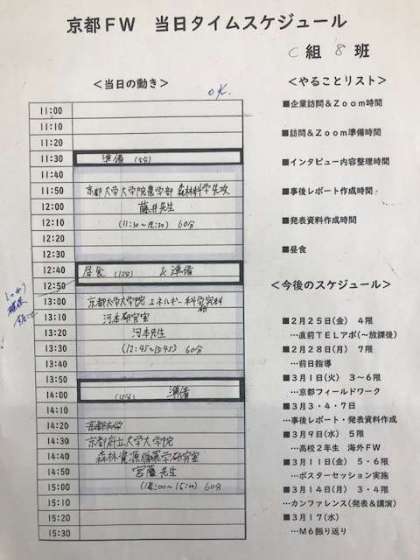 京都FW 当日タイムスケジュール
C組 8班
<当日の動き>
OK.
11:00
11:10
11:20
11:30 準備 (5分)
11:40
11:50 京都大学大学院農学部 森林科学専攻
12:00 藤井先生
12:10 (11:30~12:30) 60分
12:20
12:30
12:40 昼食 (15分) & 準備
12:50
13:00 京都大学大学院 エネルギー科学研究科
13:10 河本研究室
13:20 河本先生
13:30 (12:45~13:45) 60分
13:40
13:50
14:00 (15分) 準備
14:10
14:20
14:30 京都府立大学大学院
14:40 森林資源循環学研究室
14:50 宮藤先生
15:00 (14:00~15:00) 60分
15:10
15:20
15:30
<やることリスト>
■企業訪問&Zoom時間
■訪問&Zoom準備時間
■インタビュー内容整理時間
■事後レポート作成時間
■発表資料作成時間
■昼食
<今後のスケジュール>
■2月25日(金) 4限
…直前TELアポ(~放課後)
■2月28日(月) 7限
…前日指導
■3月1日(火) 3~6限
…京都フィールドワーク
■3月3・4・7日
…事後レポート・発表資料作成
■3月9日(水) 5限
…高校2年生 海外FW
■3月11日(金) 5・6限
…ポスターセッション実施
■3月14日(月) 3・4限
…カンファレンス(発表&講演)
■3月17(水)
…M6振り返り